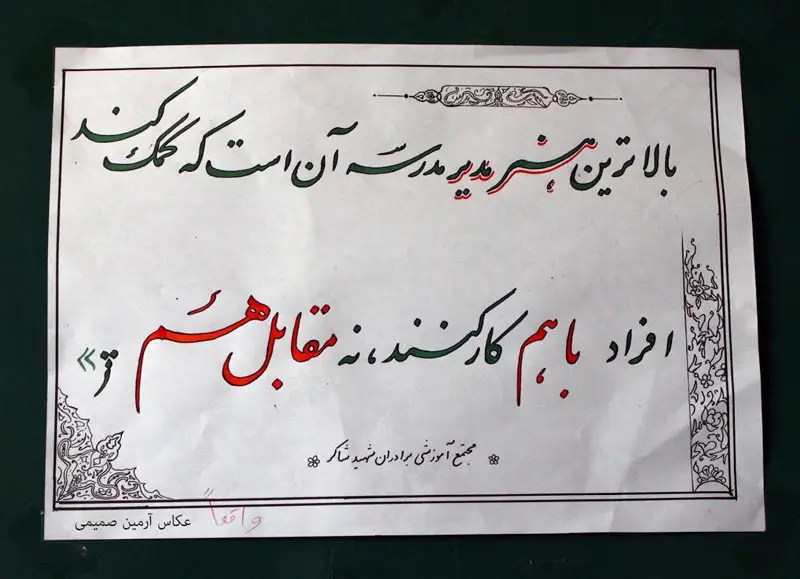 بالاترین هنر مدیر مدرسه آن است که کمک کند
افراد باهم کار کنند، نه مقابل هم
مجتمع آموزشی برادران شهید شاکر
واقعاً
عکاس آرمین صمیمی